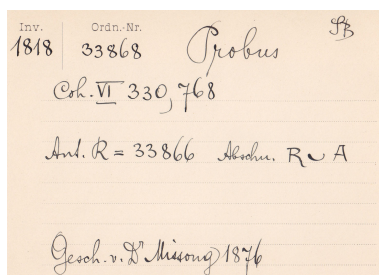 Inv. Ordn.-Nr.
1818 33868 Probus SB
Coh. VI 330, 768
Ant. R = 33866 Abschn. R ~ A
Gesch. v. Dr Missong 1876